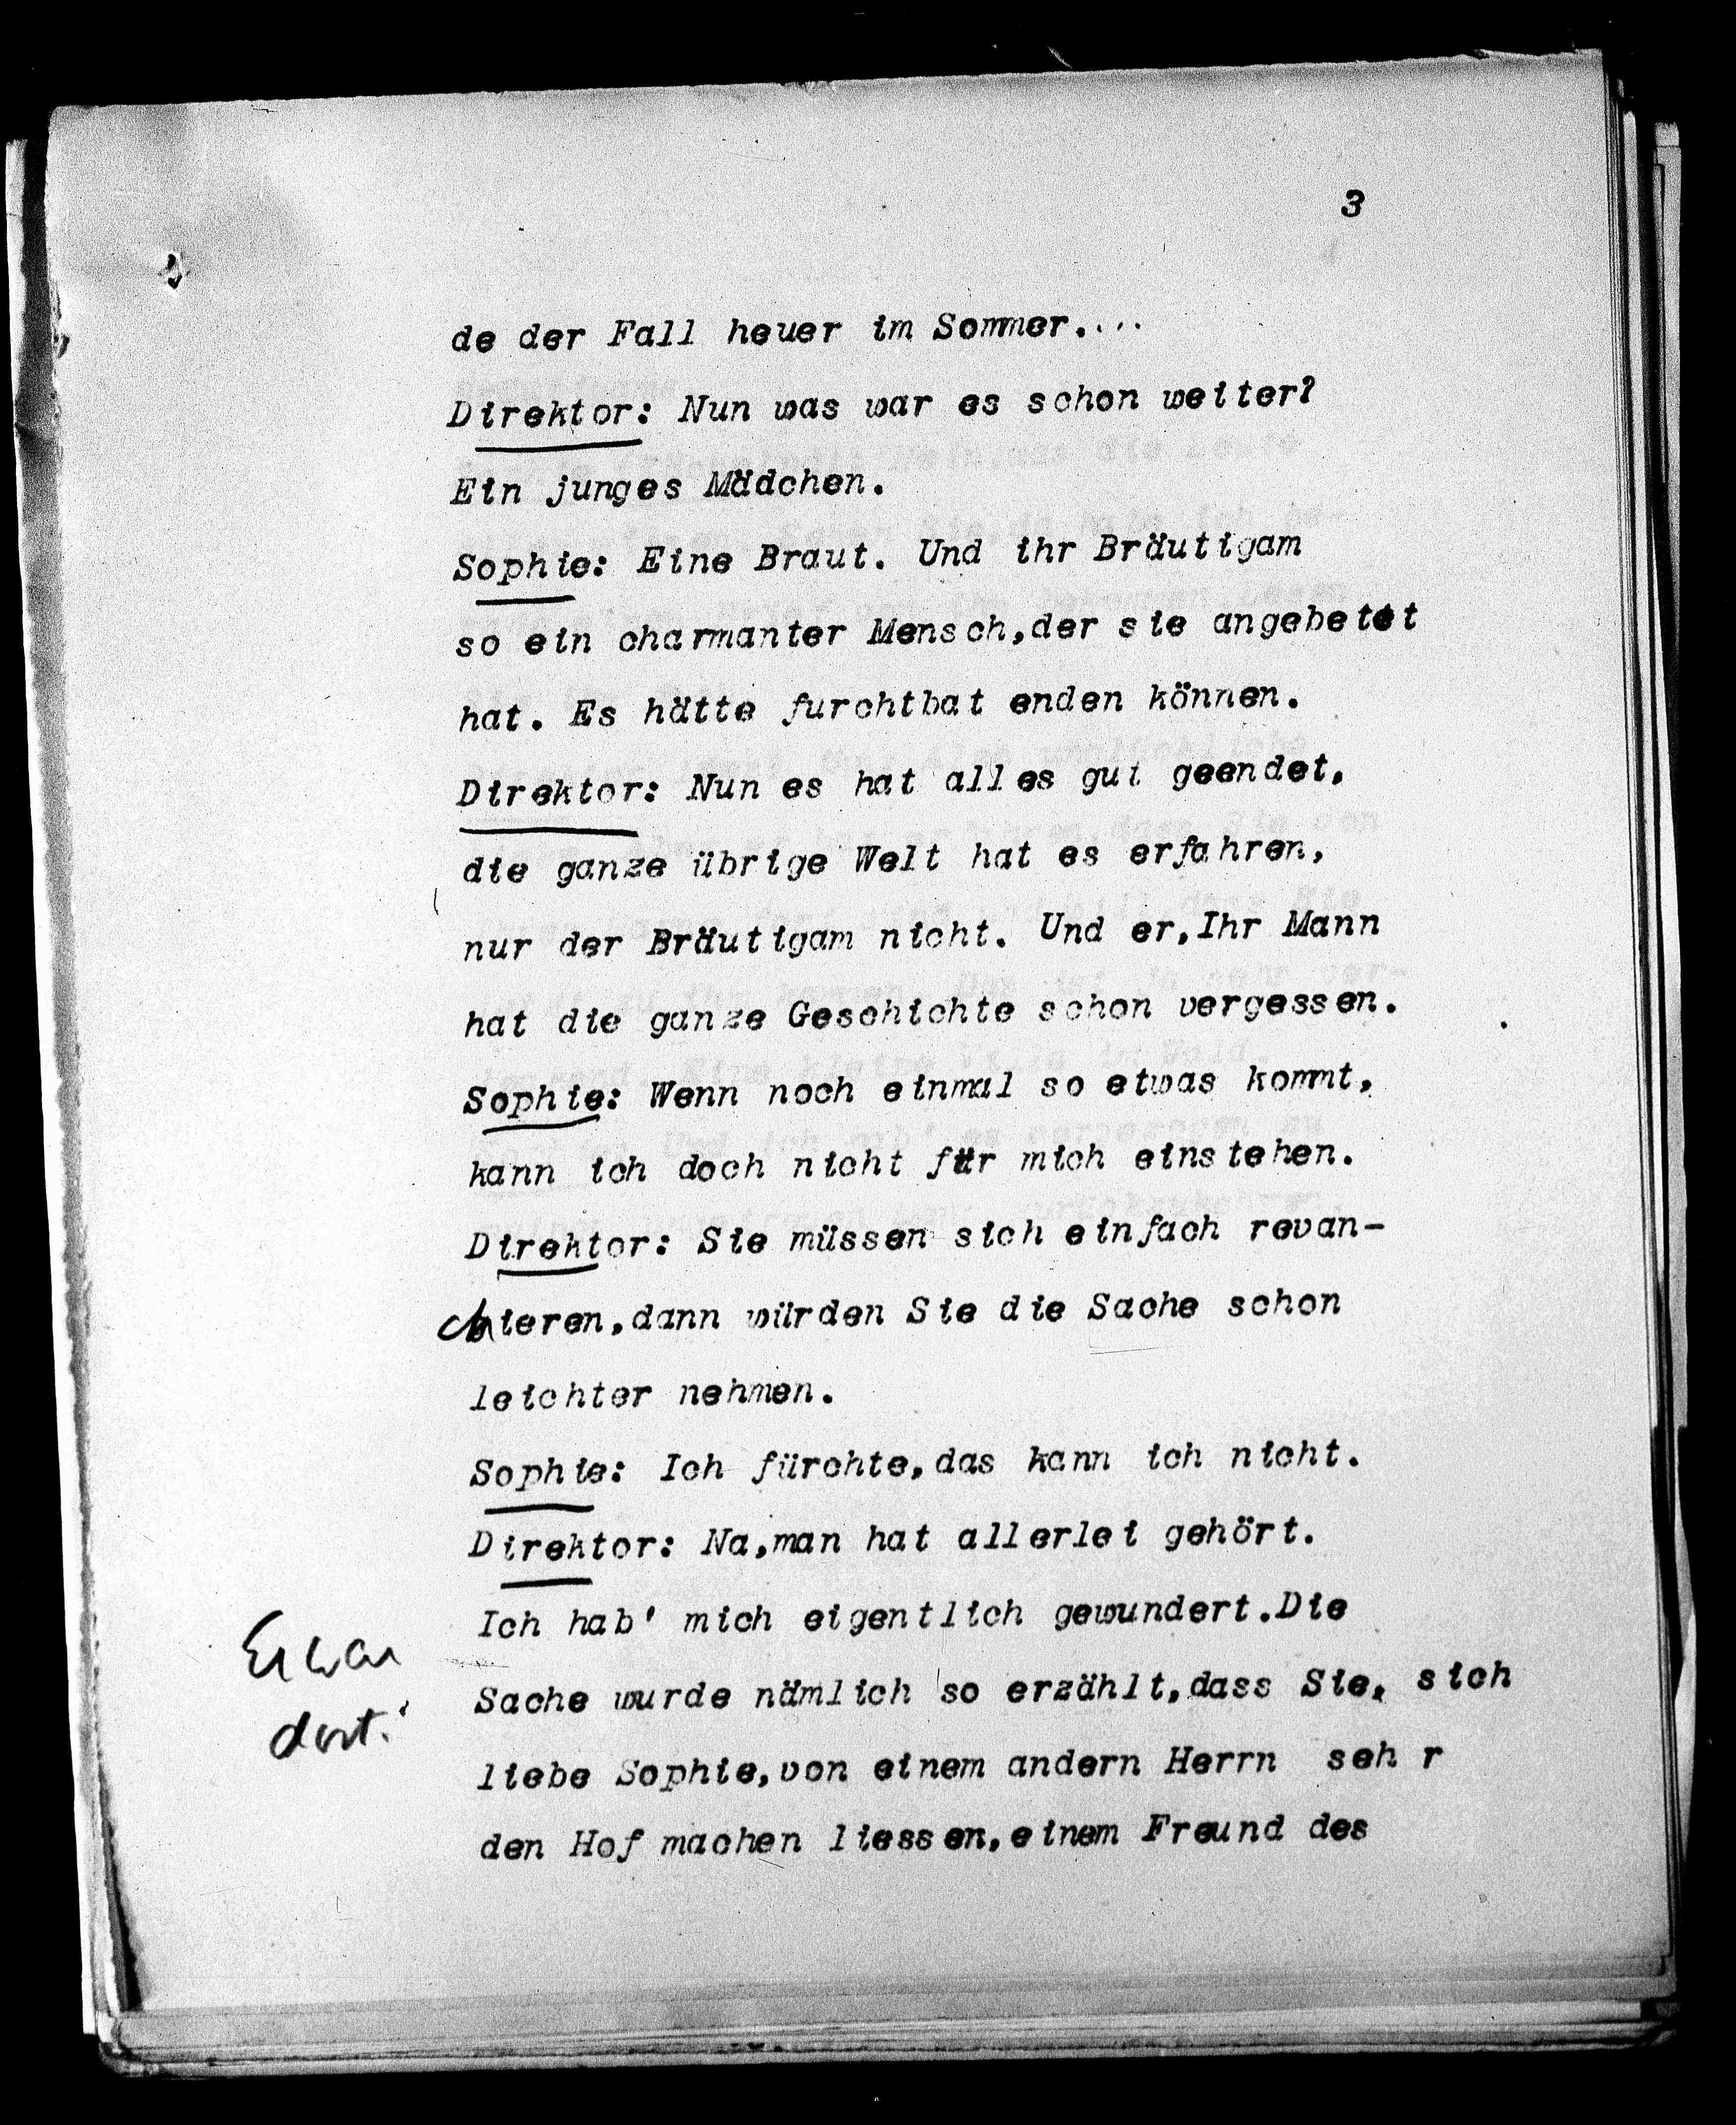 3
de der Fall heuer im Sommer....
Direktor: Nun was war es schon weiter?
Ein junges Mädchen.
Sophie: Eine Braut. Und ihr Bräutigam
so ein charmanter Mensch,der sie angebetet
hat. Es hätte furchtbat enden können.
Direktor: Nun es hat alles gut geendet,
die ganze übrige Welt hat es erfahren,
nur der Bräutigam nicht. Und er,Ihr Mann
hat die ganze Geschichte schon vergessen.
Sophie: Wenn noch einmal so etwas kommt,
kann ich doch nicht für mich einstehen.
Direktor: Sie müssen sich einfach revan-
chieren,dann würden Sie die Sache schon
leichter nehmen.
Sophie: Ich fürchte,das kann ich nicht.
Direktor: Na,man hat allerlei gehört.
Ich hab' mich eigentlich gewundert.Die
Sache wurde nämlich so erzählt,dass Sie, sich
liebe Sophie,von einem andern Herrn seh r
den Hof machen liessen,einem Freund des
Er war
dort.